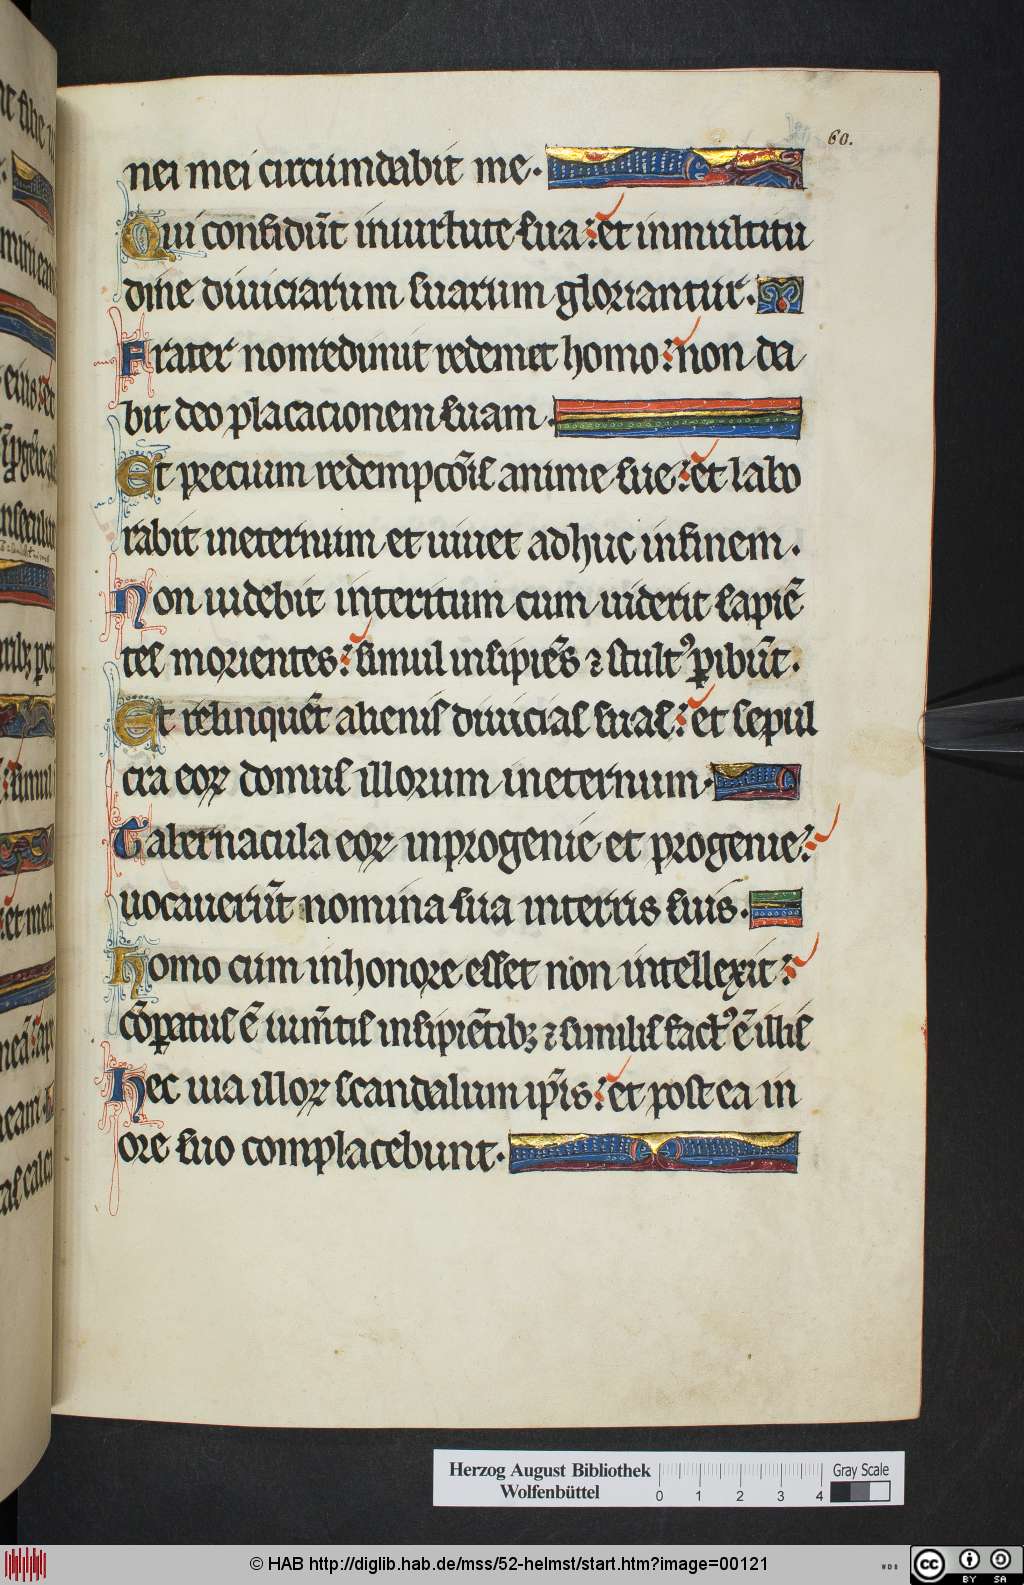 60.
nei mei circumdabit me.
Qui confidũt inuirtute sua: et inmultitu
dine diuiciarum suarum gloriantur.
Frater nonredimit redemet homo: non da
bit deo placacionem suam.
Et precium redempcõis anime sue: et labo
rabit ineternum et uiuet adhuc infinem.
Non uidebit interitum cum uiderit sapiẽ
tes morientes: simul insipiẽs ⁊ stultꝰ ꝑibũt.
Et relinquẽt alienis diuicias suas: et sepul
cra eoꝝ domus illorum ineternum.
Tabernacula eoꝝ inprogenie et progenie:
uocauerũt nomina sua interris suis.
Homo cum inhonore esset non intellexit:
cõparatus ẽ iumẽtis insipiẽtibꝫ ⁊ similis factꝰ ẽ illis
Hec uia illoꝝ scandalum ip̃is: et postea in
ore suo complacebunt.
Herzog August Bibliothek
Wolfenbüttel
0 1 2 3 4
Gray Scale
© HAB http://diglib.hab.de/mss/52-helmst/start.htm?image=00121
cc BY SA